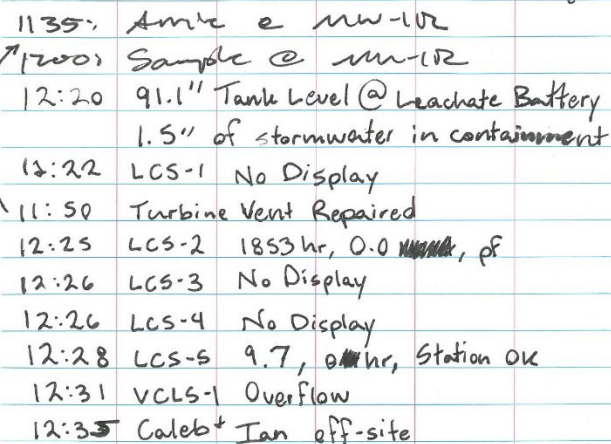 1135: Arrive @ MW-1R
1200: Sample @ MW-1R
12:20 91.1" Tank Level @ Leachate Battery
1.5" of stormwater in containment
12:22 LCS-1 No Display
11:50 Turbine Vent Repaired
12:25 LCS-2 1853 hr, 0.0, pf
12:26 LCS-3 No Display
12:26 LCS-4 No Display
12:28 LCS-5 9.7, hr, Station OK
12:31 VCLS-1 Overflow
12:35 Caleb + Ian off-site